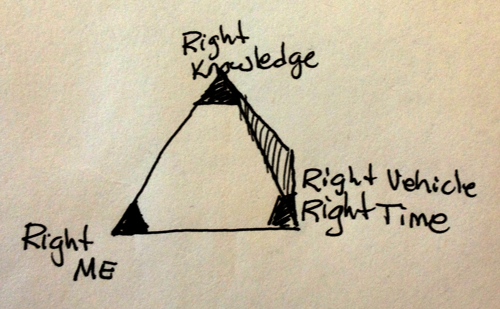 Right
Knowledge
Right Vehicle
Right Time
Right
ME